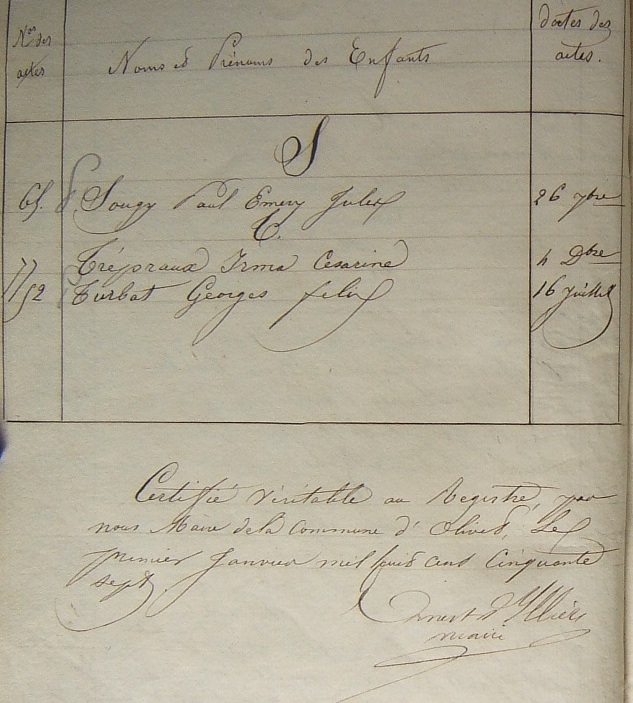 Nos des actes
Noms et Prénoms des Enfants
dates des actes.
S
65. Sougy Paul Emery Jules 26 7bre
T.
77 Trépraux Irma Cesarine 4 Dbre
52 Turbat Georges felix 16 Juillet
Certifié véritable au Registre, par
nous Maire de la Commune d'Olivet, Le
premier Janvier mil huit cent Cinquante
sept
Ernest d'Illiers
maire